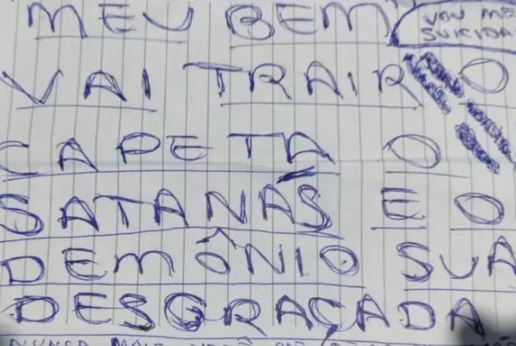 MEU BEM VOU ME
VAI TRAIR O
CAPETA O
SATANÁS E O
DEMÔNIO SUA
DESGRAÇADA